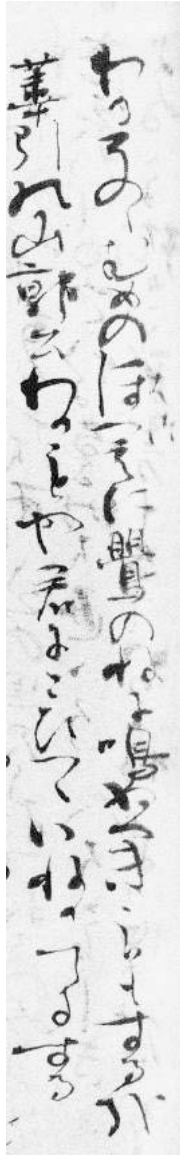 わかそのゝむめのほつえに鸎のねに鳴ぬへきこひもする哉
葦引の山郭公わかことや君にこひつゝいねかてにする